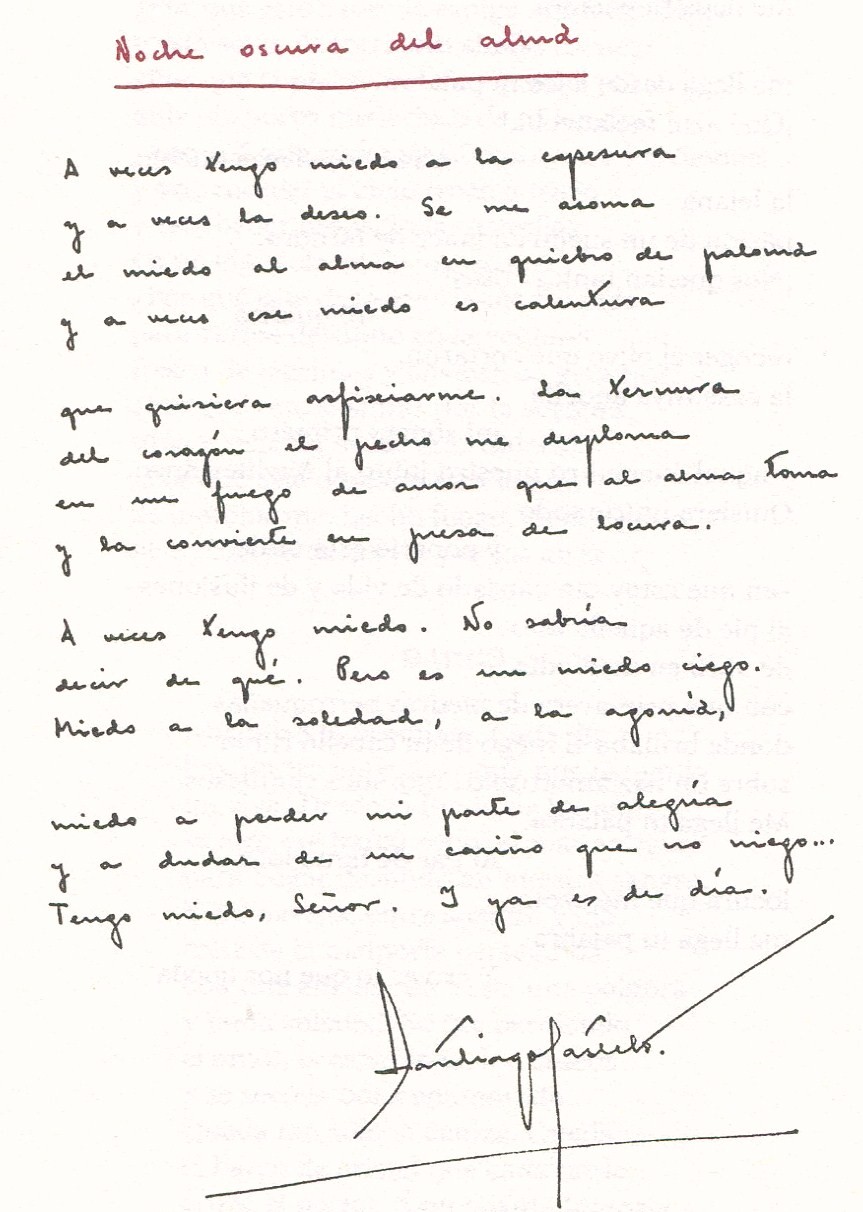 Noche oscura del alma
A veces tengo miedo a la espesura
y a veces la deseo. Se me asoma
el miedo al alma en quiebro de paloma
y a veces ese miedo es calentura
que quisiera asfixiarme. La ternura
del corazón el pecho me desploma
en un fuego de amor que al alma toma
y la convierte en presa de locura.
A veces tengo miedo. No sabría
decir de qué. Pero es un miedo ciego.
Miedo a la soledad, a la agonía,
miedo a perder mi parte de alegría
y a dudar de un cariño que no niego...
Tengo miedo, Señor. Y ya es de día.
Santiago Castelo.